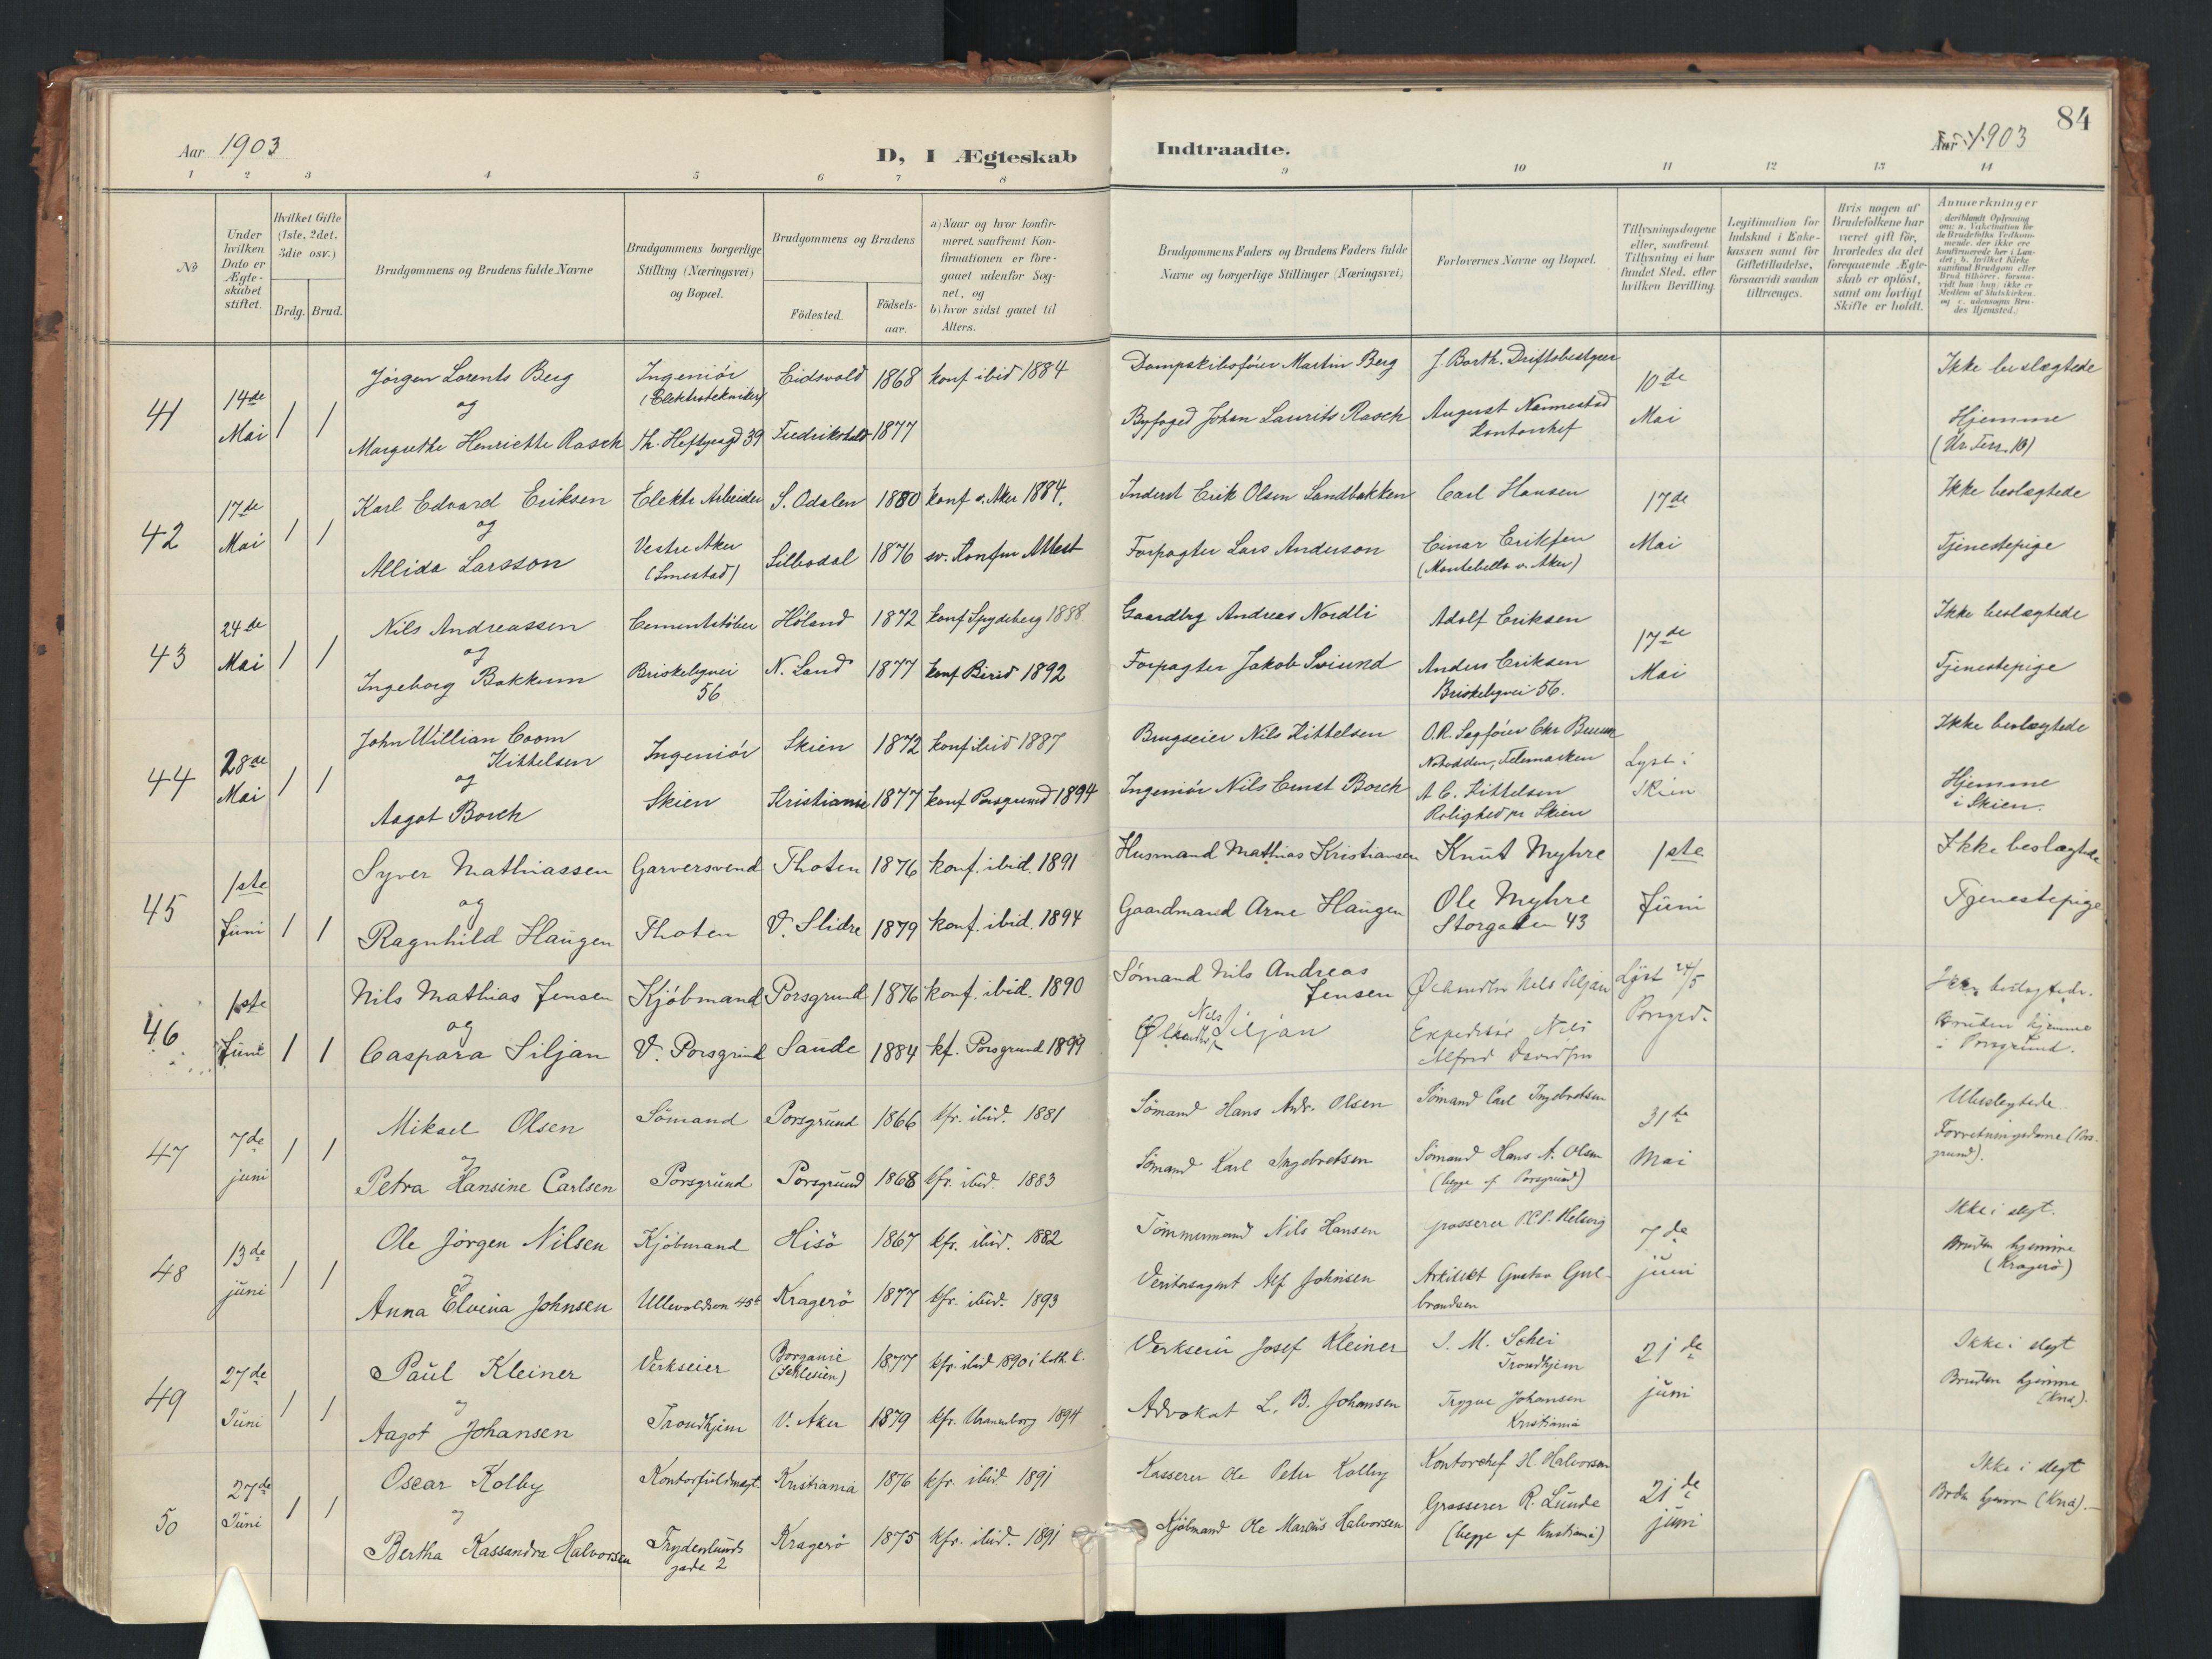 84
Aar 1903
D, I Ægteskab Indtraadte.
Aar 1903
1 2 3 4 5 6 7 8 9 10 11 12 13 14
No
Under hvilken Dato er Ægteskabet stiftet.
Hvilket Gifte (1ste, 2det, 3die osv.)
Brdg. Brud.
Brudgommens og Brudens fulde Navne
Brudgommens borgerlige Stilling (Næringsvei) og Bopæl.
Brudgommens og Brudens
Födested.
Födsels-aar.
a) Naar og hvor konfirmeret, saafremt Konfirmationen er foregaaet udenfor Sognet, og
b) hvor sidst gaaet til Alters.
Brudgommens Faders og Brudens Faders fulde Navne og borgerlige Stillinger (Næringsvei)
Forlovernes Navne og Bopæl.
Tillysningsdagene eller, saafremt Tillysning ei har fundet Sted, efter hvilken Bevilling.
Legitimation for Indskud i Enkekassen samt for Giftetilladelse, forsaavidt saadan tiltrænges.
Hvis nogen af Brudefolkene har været gift för, hvorledes da det foregaaende Ægteskab er oplöst, samt om lovligt Skifte er holdt.
Anmærkninger
41 14de Mai 1 1
Jörgen Lorents Berg Ingeniör (Elektrotekniker) Eidsvold 1868 konf ibid 1884 Dampskibsförer Martin Berg J. Barth. Driftsbestyrer 10de Mai Ikke beslægtede
og
Margrethe Henriette Rasch Th. Heftyesgd 39 Fredrikshald 1877 Byfoged Johan Laurits Rasch August Nannestad Kontorchef Hjemme
42 17de Mai 1 1
Karl Edvard Eriksen Elektr Arbeider S. Odalen 1880 konf v. Aker 1884. Inderst Erik Olsen Sandbakken Carl Hansen 17de Mai Ikke beslægtede
og
Allida Larsson Vestre Aker (Smestad) Silbodal 1876 sv. Konfm Attest Forpagter Lars Anderson Einar Eriksen (Montebello v. Aker) Tjenestepige
43 24de Mai 1 1
Nils Andreassen Cementstöber Höland 1872 konf Spydeberg 1888 Gaardbrg Andreas Nordli Adolf Eriksen 17de Mai Ikke beslægtede
og
Ingeborg Bakkum Briskebyvei 56 N. Land 1877 konf Birid 1892 Forpagter Jakob Sviund Anders Eriksen Briskebyvei 56. Tjenestepige
44 28de Mai 1 1
John Willian Coom Kittelsen Ingeniör Skien 1872 konf ibid 1887 Brugseier Nils Kittelsen O.R. Sagförer Chr Notodden, Telemarken Lyst i Skien Ikke beslægtede
og
Aagot Borch Skien Kristiania 1877 konf Porsgrund 1894 Ingeniör Nils Ernst Borch A C. Kittelsen Rolighed pr Skien Hjemme i Skien.
45 1ste Juni 1 1
Syver Mathiassen Garversvend Thoten 1876 konf. ibid. 1891 Husmand Mathias Kristiansen Knut Myhre 1ste Juni Ikke beslægtede
og
Ragnhild Haugen Thoten V. Slidre 1879 konf. ibid. 1894 Gaardmand Arne Haugen Ole Myhre Storgaten 43 Tjenestepige
46 1ste Juni 1 1
Nils Mathias Jensen Kjöbmand Porsgrund 1876 konf. ibid. 1890 Sömand Nils Andreas Jensen Nils Siljan Lyst 24/5 Porsgrd. Ikke beslægtede.
og
Caspara Siljan V. Porsgrund Saude 1884 kf. Porsgrund 1899 Nils Siljan Expeditör Nils Alfred Bruden hjemme i Porsgrund.
47 7de juni 1 1
Mikael Olsen Sömand Porsgrund 1866 kfr. ibid. 1881 Sömand Hans Andr. Olsen Sömand Carl Ingebretsen 31te Mai Ubeslegtede
og
Petra Hansine Carlsen Porsgrund Porsgrund 1868 kfr. ibid. 1883 Sömand Karl Ingebretsen Sömand Hans A. Olsen (begge af Porsgrund) Forretningsdame (Porsgrund).
48 13de juni 1 1
Ole Jörgen Nilsen Kjöbmand Hisö 1867 kfr. ibid. 1882 Tömmermand Nils Hansen grosserer P.C.P. Helserig 7de juni Ikke i slegt.
og
Anna Elvina Johnsen Ullevoldsvn 45b Kragerö 1877 kfr. ibid. 1893 Veritasagent Alf Johnsen Arkitekt Gustav Gulbrandsen Bruden hjemme (Kragerö)
49 27de Juni 1 1
Paul Kleiner Verkseier Borganie (Schlesien) 1877 kfr. ibid 1890 i kath. k. Verkseier Josef Kleiner J. M. Schei Trondhjem 21de juni Ikke i slegt
og
Aagot Johansen Trondhjem V. Aker 1879 kfr. Uranienborg 1894 Advokat L. B. Johansen Trygve Johansen Kristiania Bruden hjemme (Kna).
50 27de Juni 1 1
Oscar Kolby Kontorfuldmægt. Kristiania 1876 kfr. ibid. 1891 Kasserer Ole Peter Kolby Kontorchef H. Halvorsen 21de juni Ikke i slegt
og
Bertha Kassandra Halvorsen Frydenlunds gade 2 Kragerö 1875 kfr. ibid. 1891 Kjöbmand Ole Marius Halvorsen Grosserer R. Lunde (begge af Kristiania) hjemme (Kna).